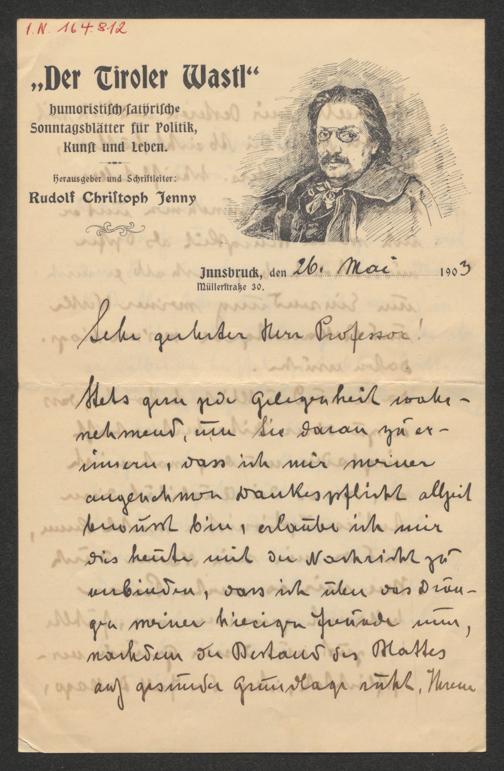 I.N. 164.812
„Der Tiroler Wastl“
humoristisch-satyrische
Sonntagsblätter für Politik,
Kunst und Leben.
Herausgeber und Schriftleiter:
Rudolf Christoph Jenny
Innsbruck, den 26. Mai 1903
Müllerstraße 30.
Sehr geehrter Herr Professor!
Stets gern jede Gelegenheit wahr-
nehmend, um Sie daran zu er-
innern, dass ich mir meiner
angenehmen Dankespflicht allzeit
bewusst bin, erlaube ich mir
dies heute mit der Nachricht zu
verbinden, dass ich über das Drän-
gen meiner hiesigen Freunde nun,
nachdem der Bestand des Blattes
auf gesunder Grundlage ruht,